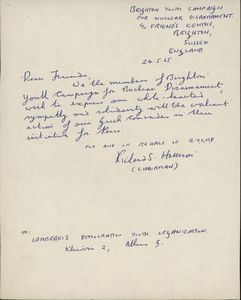 BRIGHTON YOUTH CAMPAIGN
FOR NUCLEAR DISARMAMENT.
c/o FRIENDS CENTRE,
BRIGHTON,
SUSSEX.
ENGLAND.
24.5.65
Dear Friends,
We the members of Brighton
Youth Campaign for Nuclear Disarmament,
wish to express our whole-hearted
sympathy and solidarity with the valiant
action of our Greek comrades in their
initiative for Peace.
FOR AND ON BEHALF OF B.Y.C.N.D.
Richard S.
(CHAIRMAN)
TO:
LAMBRAKIS DEMOCRATIC YOUTH ORGANIZATION.
2, Athens